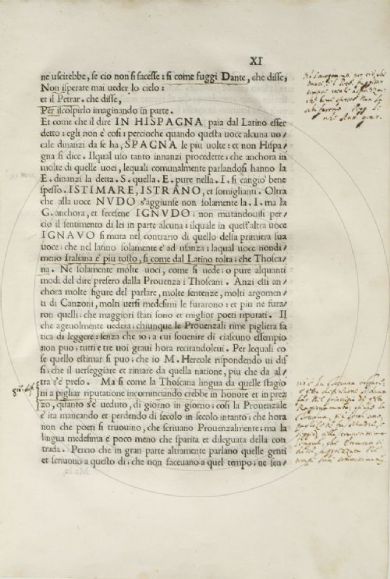 XI
ne uscirebbe, se cio non si facesse: si come fuggì Dante, che disse,
Non isperate mai ueder lo cielo:
et il Petrar. che disse,
Per iscolpirlo imaginando in parte.
Et come che il dire IN HISPAGNA paia dal Latino esser
detto: egli non è cosi: percioche quando questa uoce alcuna uo/
cale dinanzi da se ha, SPAGNA le piu uolte: et non Hispa/
gna si dice. Ilqual uso tanto innanzi procedette: che anchora in
molte di quelle uoci, lequali comunalmente parlandosi hanno la
E. dinanzi la detta. S. quella. E. pure nella. I. si cangiò bene
spesso. ISTIMARE, ISTRANO, et somiglianti. Oltra
che alla uoce NVDO s'aggiunse non solamente la. I. ma la
G. anchora, et fecesene IGNVDO: non mutandouisi per/
cio il sentimento di lei in parte alcuna: ilquale in quest'altra uoce
IGNAVO si muta nel contrario di quello della primiera sua
uoce: che nel latino solamente è ad usanza: laqual uoce nondi/
meno Italiana è piu tosto, si come dal Latino tolta: che Thosca/
na. Ne solamente molte uoci, come si uede: o pure alquanti
modi del dire presero dalla Prouenza i Thoscani. Anzi essi an/
chora molte figure del parlare, molte sentenze, molti argomen/
ti di Canzoni, molti uersi medesimi le furarono: et piu ne fura/
ron quelli: che maggiori stati sono et miglior poeti riputati. Il
che ageuolmente uedera: chiunque le Prouenzali rime pigliera fa/
tica di leggere: senza che io: a cui souenire di ciascuno essempio
non puo: tutti e tre uoi graui hora recitandoleui. Per lequai co/
se quello estimar si puo: che io M. Hercole rispondendo ui dis/
si: che il uerseggiare et rimare da quella natione, piu che da al/
tra s'è preso. Ma si come la Thoscana lingua da quelle stagio
ni a pigliar riputatione incominciando crebbe in honore et in pre/
zo, quanto s'è ueduto, di giorno in giorno: cosi la Prouenzale
è ita mancando et perdendo di secolo in secolo intanto: che hora
non che poeti si truouino, che scriuano Prouenzalmente: ma la
lingua medesima è poco meno che sparita et dileguata della con
trada. Percio che in gran parte altramente parlano quelle genti
et scriuono a questo dì: che non faceuano a quel tempo: ne sen/